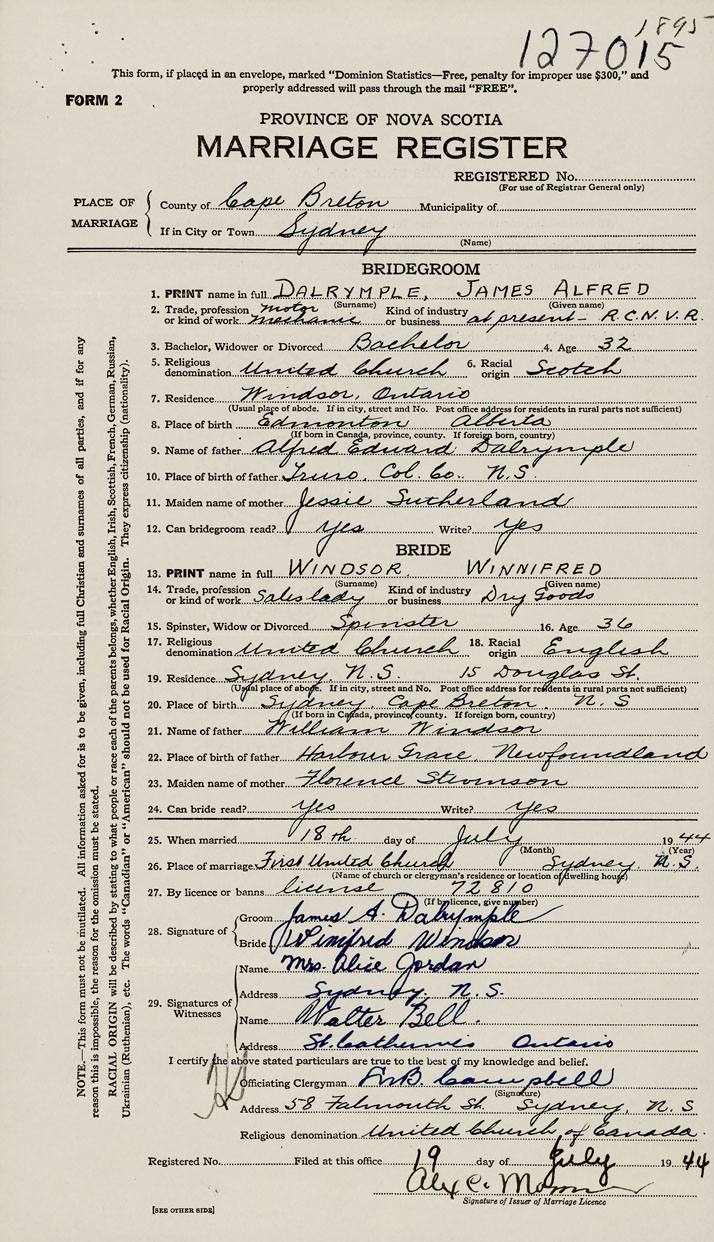 1895
127015
This form, if placed in an envelope, marked "Dominion Statistics—Free, penalty for improper use $300," and
properly addressed will pass through the mail "FREE".
FORM 2
PROVINCE OF NOVA SCOTIA
MARRIAGE REGISTER
REGISTERED No.
(For use of Registrar General only)
PLACE OF MARRIAGE
County of Cape Breton Municipality of
If in City or Town Sydney
(Name)
BRIDEGROOM
1. PRINT name in full DALRYMPLE, JAMES ALFRED
(Surname) (Given name)
2. Trade, profession or kind of work motor mechanic Kind of industry or business at present - R.C.N.V.R.
3. Bachelor, Widower or Divorced Bachelor 4. Age 32
5. Religious denomination United Church 6. Racial origin Scotch
7. Residence Windsor, Ontario
(Usual place of abode. If in city, street and No. Post office address for residents in rural parts not sufficient)
8. Place of birth Edmonton Alberta
(If born in Canada, province, county. If foreign born, country)
9. Name of father Alfred Edward Dalrymple
10. Place of birth of father Truro, Col. Co. N.S.
11. Maiden name of mother Jessie Sutherland
12. Can bridegroom read? yes Write? yes
BRIDE
13. PRINT name in full WINDSOR WINNIFRED
(Surname) (Given name)
14. Trade, profession or kind of work Saleslady Kind of industry or business Dry Goods
15. Spinster, Widow or Divorced Spinster 16. Age 36
17. Religious denomination United Church 18. Racial origin English
19. Residence Sydney, N.S. 15 Douglas St.
(Usual place of abode. If in city, street and No. Post office address for residents in rural parts not sufficient)
20. Place of birth Sydney, Cape Breton, N.S
(If born in Canada, province, county. If foreign born, country)
21. Name of father William Windsor
22. Place of birth of father Harbour Grace, Newfoundland
23. Maiden name of mother Florence Stevenson
24. Can bride read? yes Write? yes
25. When married 18th day of July 1944
(Month) (Year)
26. Place of marriage First United Church Sydney, N.S.
(Name of church or clergyman's residence or location of dwelling house)
27. By licence or banns license 72810
(If by licence, give number)
28. Signature of
Groom James A. Dalrymple
Bride Winifred Windsor
29. Signatures of Witnesses
Name Mrs. Alice Jordan
Address Sydney, N.S.
Name Walter Bell.
Address St. Catherines Ontario
I certify the above stated particulars are true to the best of my knowledge and belief.
Officiating Clergyman Campbell
(Signature)
Address 58 Falmouth St. Sydney, N.S
Religious denomination United Church of Canada.
Registered No. Filed at this office 19 day of July 1944
Alex C.
Signature of Issuer of Marriage Licence
[SEE OTHER SIDE]
NOTE.—This form must not be mutilated. All information asked for is to be given, including full Christian and surnames of all parties, and if for any
reason this is impossible, the reason for the omission must be stated.
RACIAL ORIGIN will be described by stating to what people or race each of the parents belongs, whether English, Irish, Scottish, French, German, Russian,
Ukrainian (Ruthenian), etc. The words "Canadian" or "American" should not be used for Racial Origin. They express citizenship (nationality).